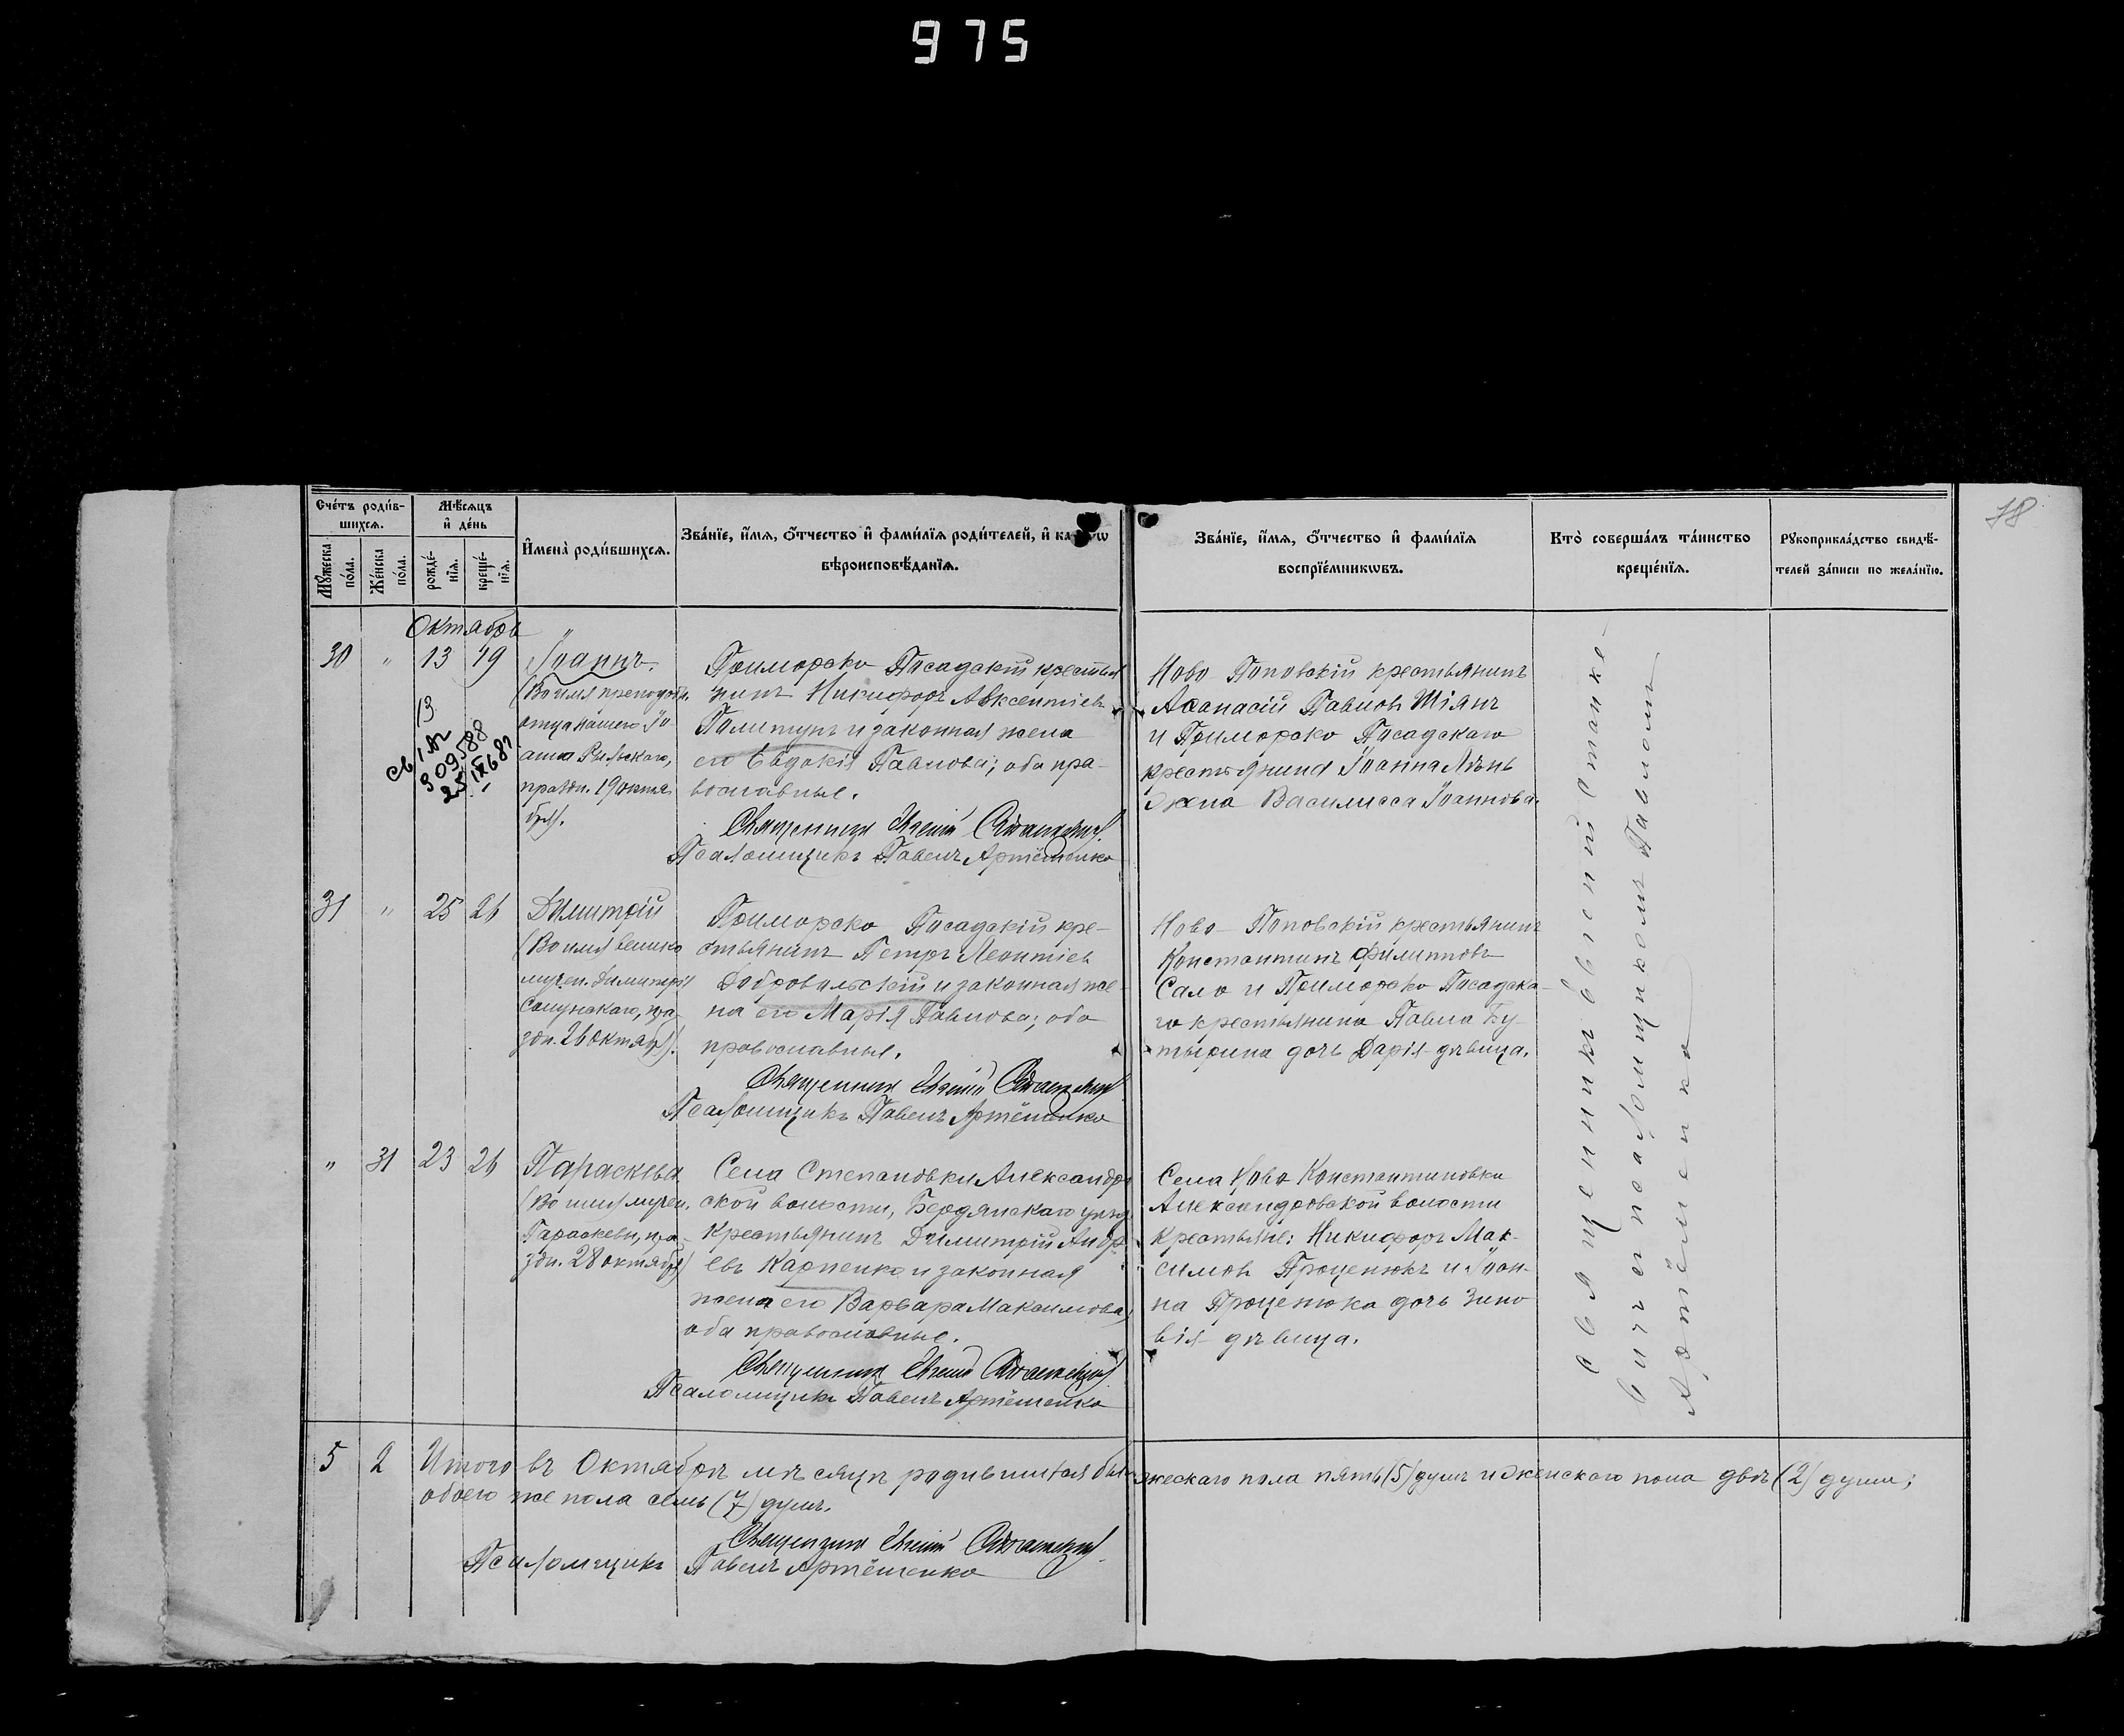 975
78
Счетъ родив-
шихся.
Мѣсяцъ
и день
Мужеска
пола.
Женска
пола.
рожде-
нія.
креще-
нія.
Имена родившихся.
Званіе, имя, отчество и фамилія родителей, и
вѣроисповѣданія.
Званіе, имя, отчество и фамилія
воспріемниковъ.
Кто совершалъ таинство
крещенія.
Рукоприкладство свидѣ-
телей записи по желанію.
Октябрь
30 " 13 19
Іоаннъ.
(Во имя преподобн.
отца нашего Іо-
анна Рыльскаго,
праздн. 19 октя
бря).
13
309588
Приморско Посадскій крестья
нинъ Никифоръ Авксентіевъ
и законная жена
его Евдокія Павлова; оба пра-
вославные.
Священникъ
Псаломщикъ Павелъ Артёменко
Ново Поповскій крестьянинъ
Аѳанасій Павловъ Шіянъ
и Приморско Посадскаго
крестьянина Іоанна
жена Василисса Іоаннова.
31 " 25 26
Димитрій
(Во имя велико
мучен. Димитрія
Солунскаго, пра-
здн. 26 октяб).
Приморско Посадскій кре-
стьянинъ Петръ Леонтіевъ
Добровольскій и законная же-
на его Марія Павлова; оба
православные.
Священникъ
Псаломщикъ Павелъ Артёменко
Ново-Поповскій крестьянинъ
Константинъ Филипповъ
Сало и Приморско Посадска-
го крестьянина Павла Бу-
тырина дочь Дарія-дѣвица.
" 31 23 26
Параскева
(Во имя мучен.
Параскевы, пра-
здн. 28 октября)
Села Степановки Александро
ской волости, Бердянскаго уѣзд.
крестьянинъ Димитрій Андр
евъ Карпенко и законная
жена его Варвара Максимова;
оба православные.
Священникъ
Псаломщикъ Павелъ Артёменко
Села Ново Константиновки
Александровской волости
крестьяне: Никифоръ Мак-
симовъ Проценюкъ и Іоан-
на Проценюка дочь Зино
вія-дѣвица.
Священникъ Евгеній
съ псаломщикомъ Павломъ
Артёменко
5 2 Итого въ Октябрѣ мѣсяцѣ родившихся жескаго пола пять (5) душъ и женскаго пола двѣ (2) души;
обоего же пола семь (7) душъ.
Священникъ
Псаломщикъ Павелъ Артёменко